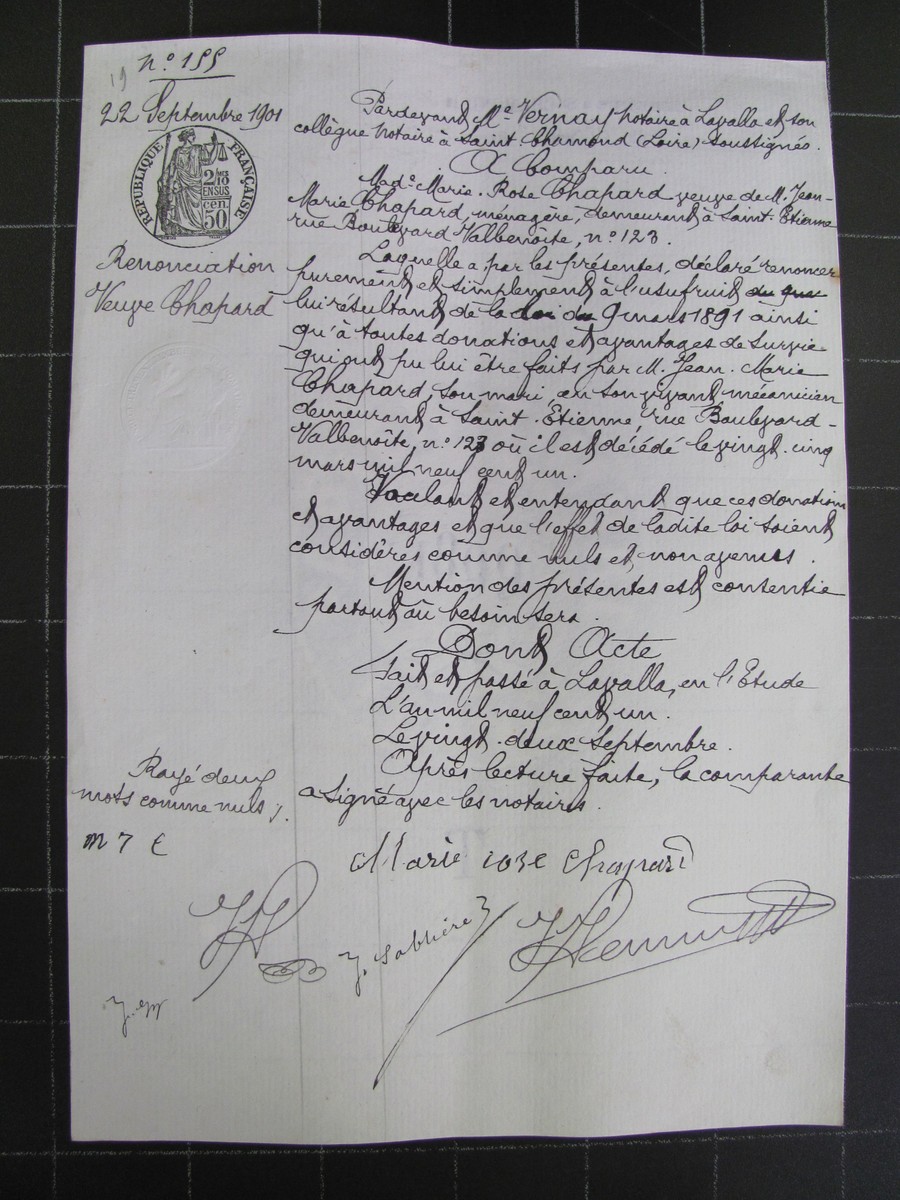 19
N.º 155
22 Septembre 1901
RÉPUBLIQUE FRANÇAISE
2/10
EN SUS
50 cen.
Renonciation
Veuve Chapard
Pardevant Me Vernay notaire à Lavalla et son
collègue notaire à Saint Chamond (Loire) soussignés.
A Comparu
Made Marie-Rose Chapard veuve de M. Jean-
Marie Chapard, ménagère, demeurant à Saint-Etienne
rue Boulevard Valbenoîte, n.º 123.
Laquelle a par les présentes, déclaré renoncer
purement et simplement à l'usufruit du que
lui résultant de la loi du 9 mars 1891 ainsi
qu'à toutes donations et avantages de survie
qui ont pu lui être faits par M. Jean-Marie
Chapard, son mari, en son vivant mécanicien
demeurant à Saint-Etienne, rue Boulevard-
Valbenoîte, n.º 123 où il est décédé le vingt-cinq
mars mil neuf cent un.
Voulant et entendant que ces donations
et avantages et que l'effet de ladite loi soient
considérés comme nuls et non avenus.
Mention des présentes est consentie
partout où besoin sera.
Dont Acte
Fait et passé à Lavalla, en l'Etude
L'an mil neuf cent un.
Le vingt-deux Septembre.
Après lecture faite, la comparante
a signé avec les notaires.
Rayé deux
mots comme nuls
Marie rose Chapard
J. Sablière